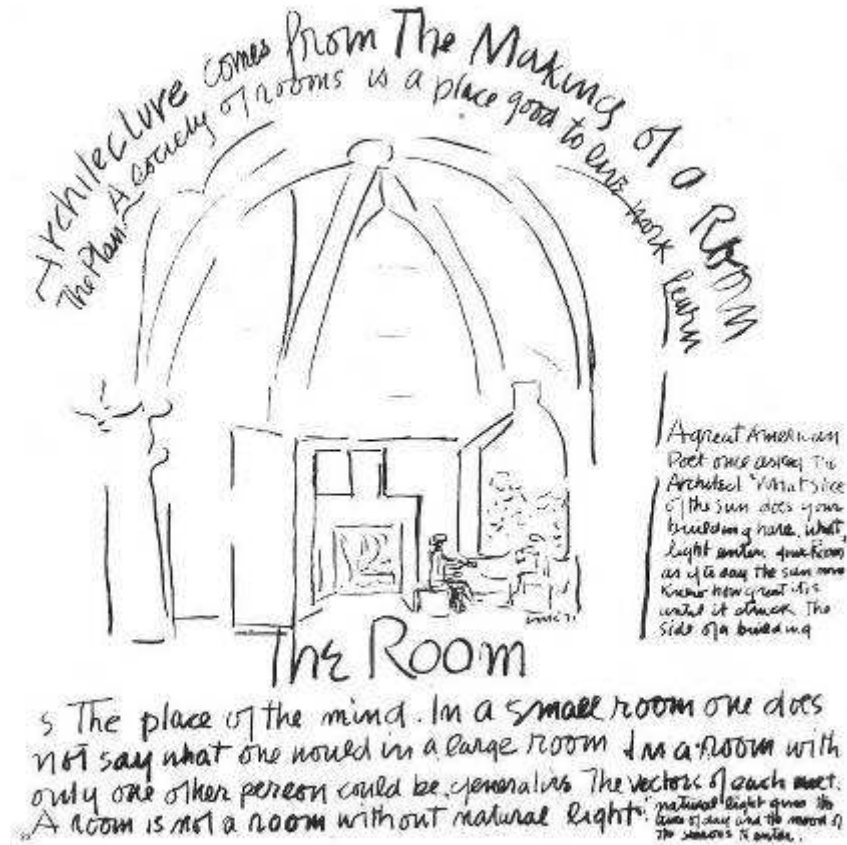 Architecture comes from The Making of a Room
The Plan A society of rooms is a place good to live work learn
A great American
Poet once asked The
Architect "What slice
of the sun does your
building have. what
light enters your Room
as if to say the sun never
knew how great it is
until it struck The
side of a building
The Room
s The place of the mind. In a small room one does
not say what one would in a large room In a room with
only one other person could be generative The vectors of each meet.
A room is not a room without natural light.
natural light gives the
time of day and the mood of
The seasons to enter.